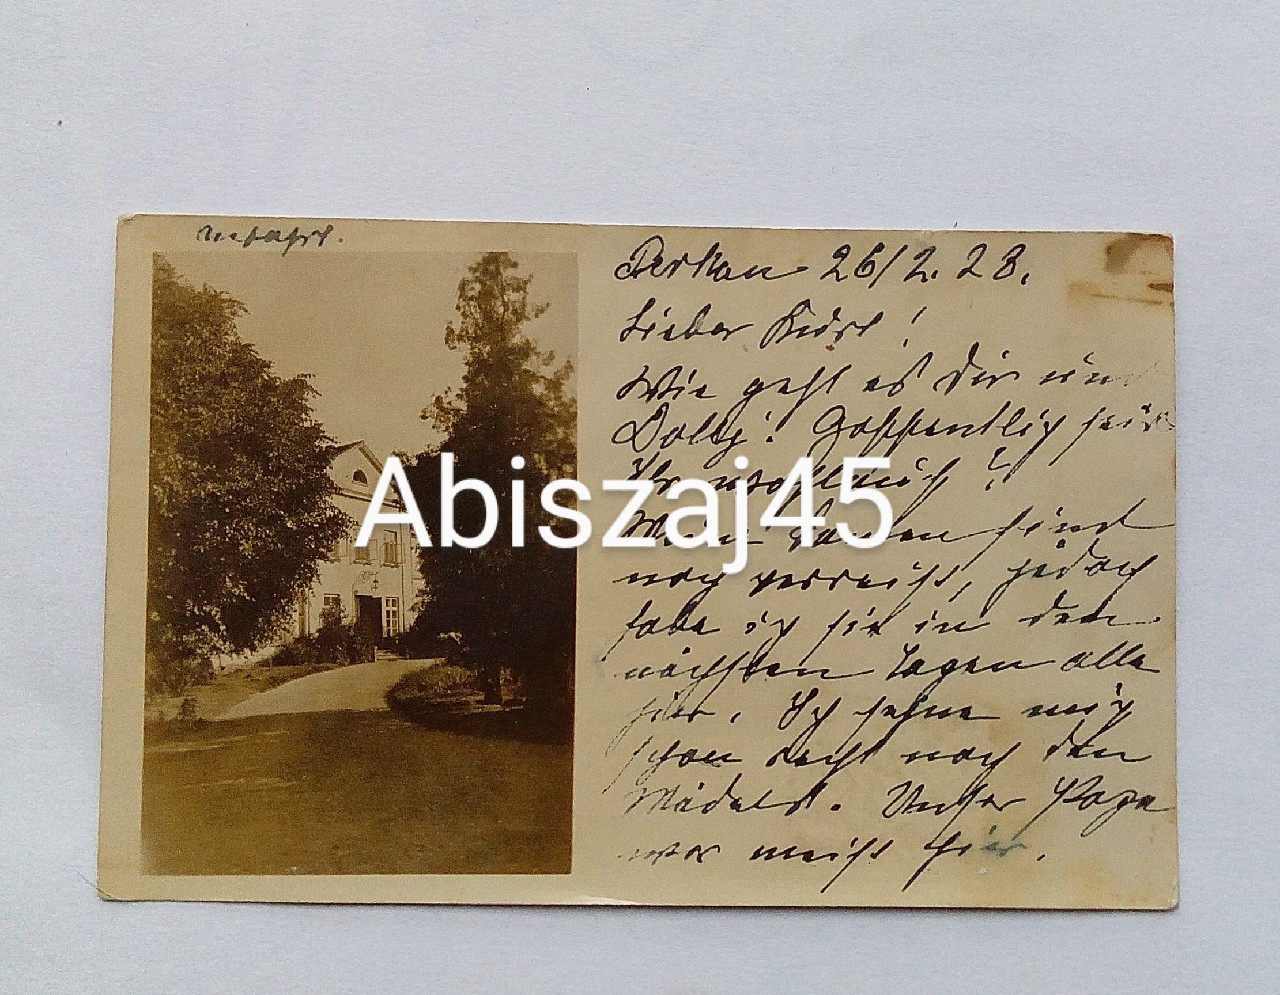 26/2. 28.
Lieber Kurt!
Wie geht es Dir und
Dolly? Hoffentlich seid
Ihr wohlauf?
Abiszaj45
Meine Damen sind
noch verreist, jedoch
habe ich sie in den
nächsten Tagen alle
hier. Ich sehne mich
schon recht nach den
Mädels. Unser Papa
war meist hier.